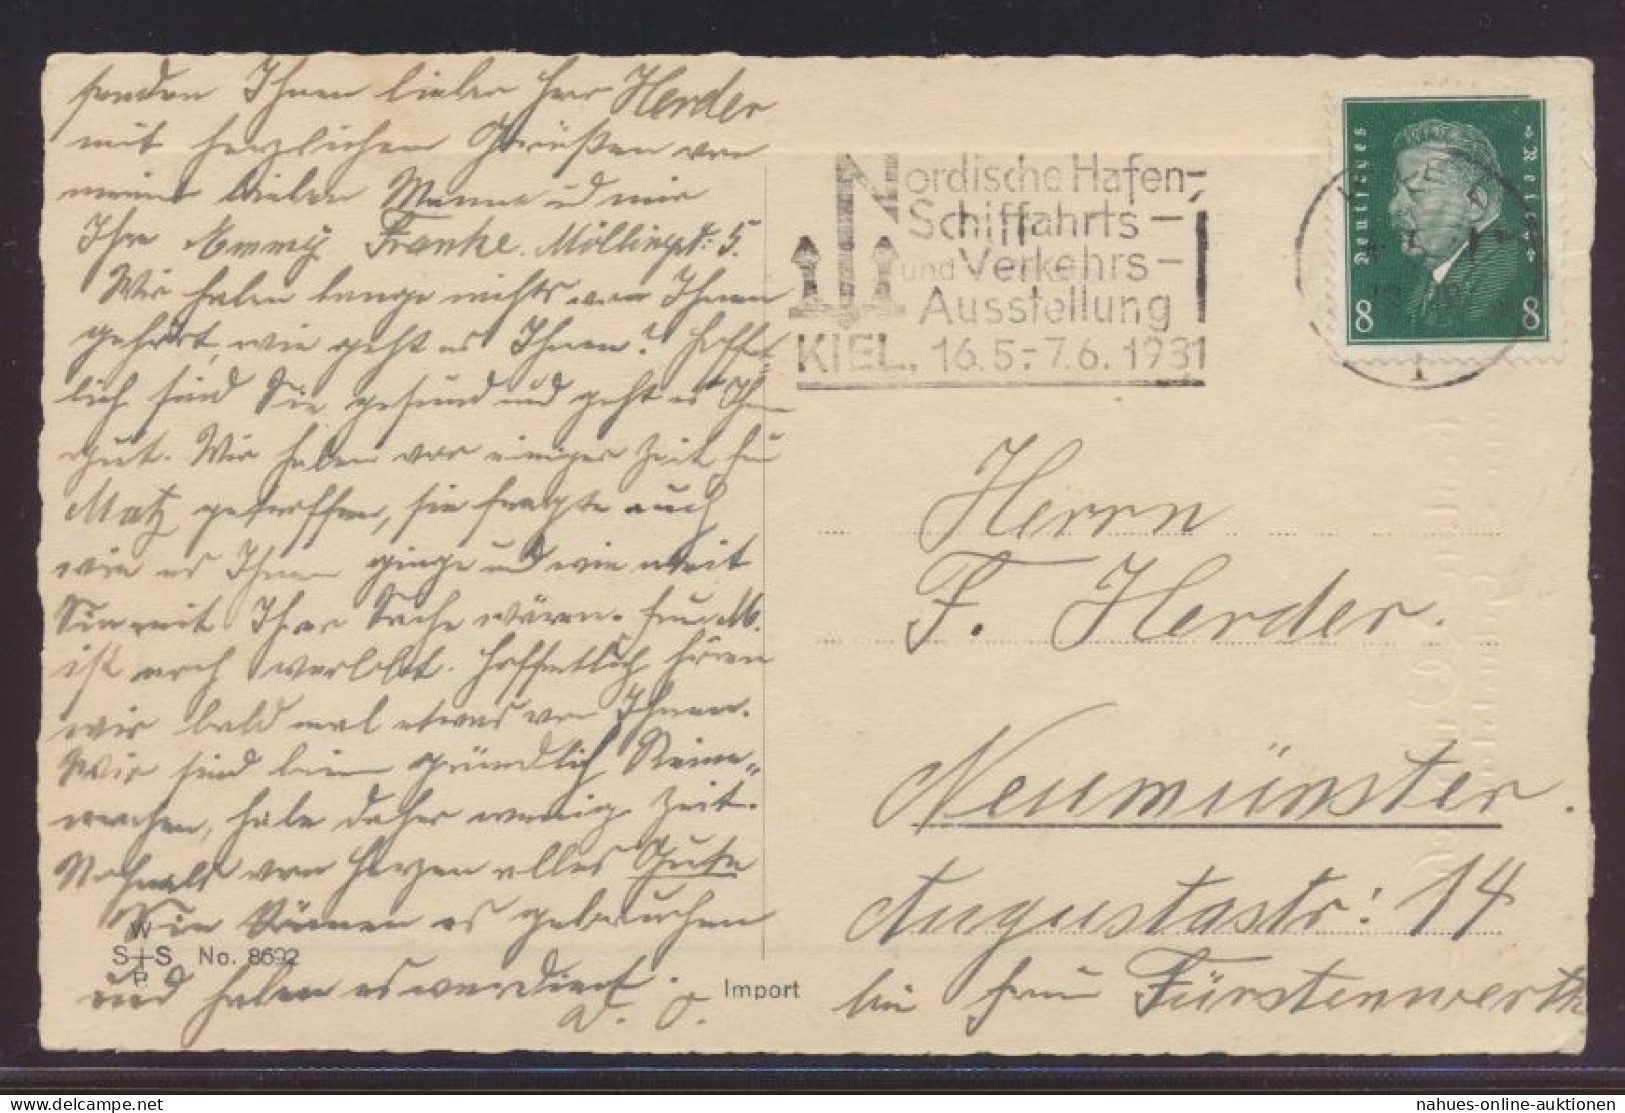 senden Ihnen lieber Herr Herder
mit herzlichen Grüßen von
meinem lieben Manne und mir
Ihre Emmy Franke. Möllingstr: 5.
Wir haben lange nichts von Ihnen
gehört, wie geht es Ihnen? Hoffent=
lich sind Sie gesund und geht es Ihnen
gut. Wir haben vor einiger Zeit
Matz getroffen, sie fragte auch
wie es Ihnen ginge und wie weit
Sie mit Ihrer Sache wären.
ist noch verlobt. Hoffentlich hören
wir bald mal etwas von Ihnen.
Wir sind beim gründlich Reine=
machen, habe daher wenig Zeit.
Nochmals von Herzen alles Gute
Sie können es gebrauchen
und haben es verdient.
D. O.
W
S+S No. 8692
B
Import
Nordische Hafen-,
Schiffahrts-
und Verkehrs-
Ausstellung
KIEL. 16.5.-7.6.1931
Deutsches Reich
8 8
KIEL
1
Herrn
F. Herder.
Neumünster.
Augustastr: 14
bei Frau Fürstenwerth
nahues-online-auktionen